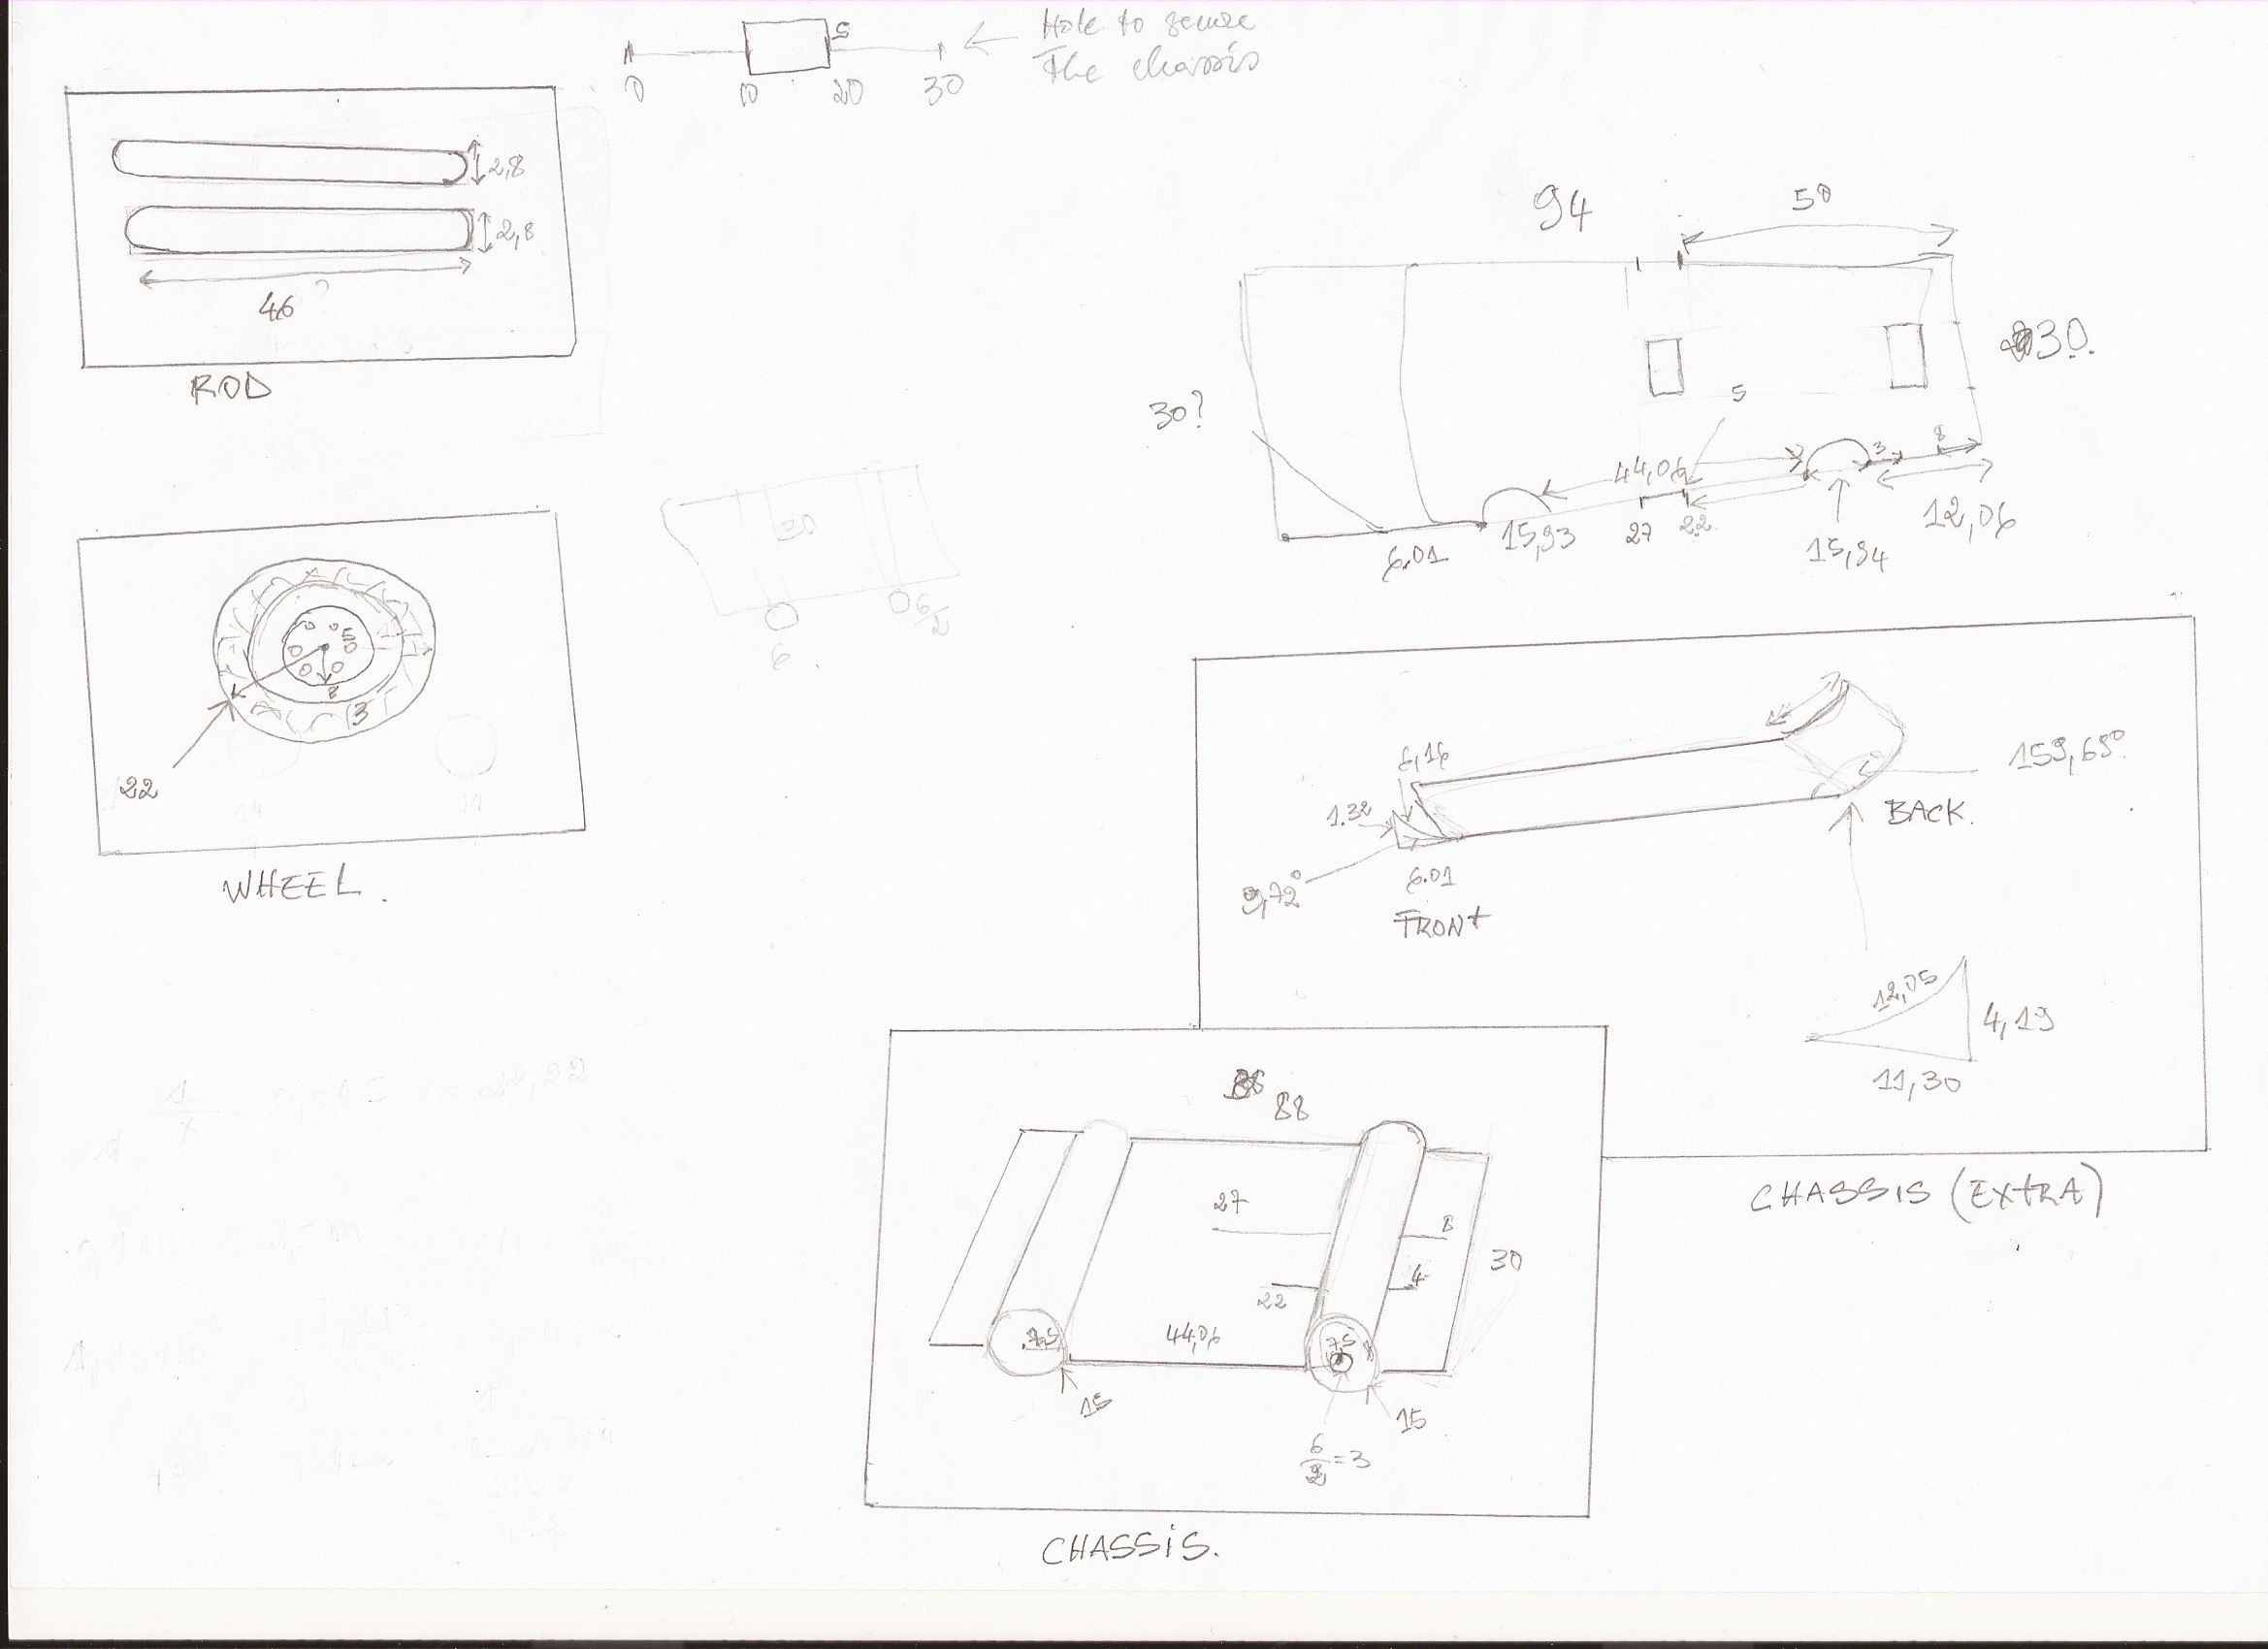 Hole to secure
The chassis
5
0 10 20 30
2,8
2,8
46 ?
ROD
94
50
30.
30?
5
44,06
3
8
6.01
15,93
27
22.
15,94
12,06
30
6
6/2
5
3
22
WHEEL.
6,16
1.32
9,72°
6.01
FRONT
159,69°
BACK.
12,05
4,19
11,30
CHASSIS (EXTRA)
88
27
8
30
4
22
44,06
7.5
7,5
15
15
6/2=3
CHASSIS.